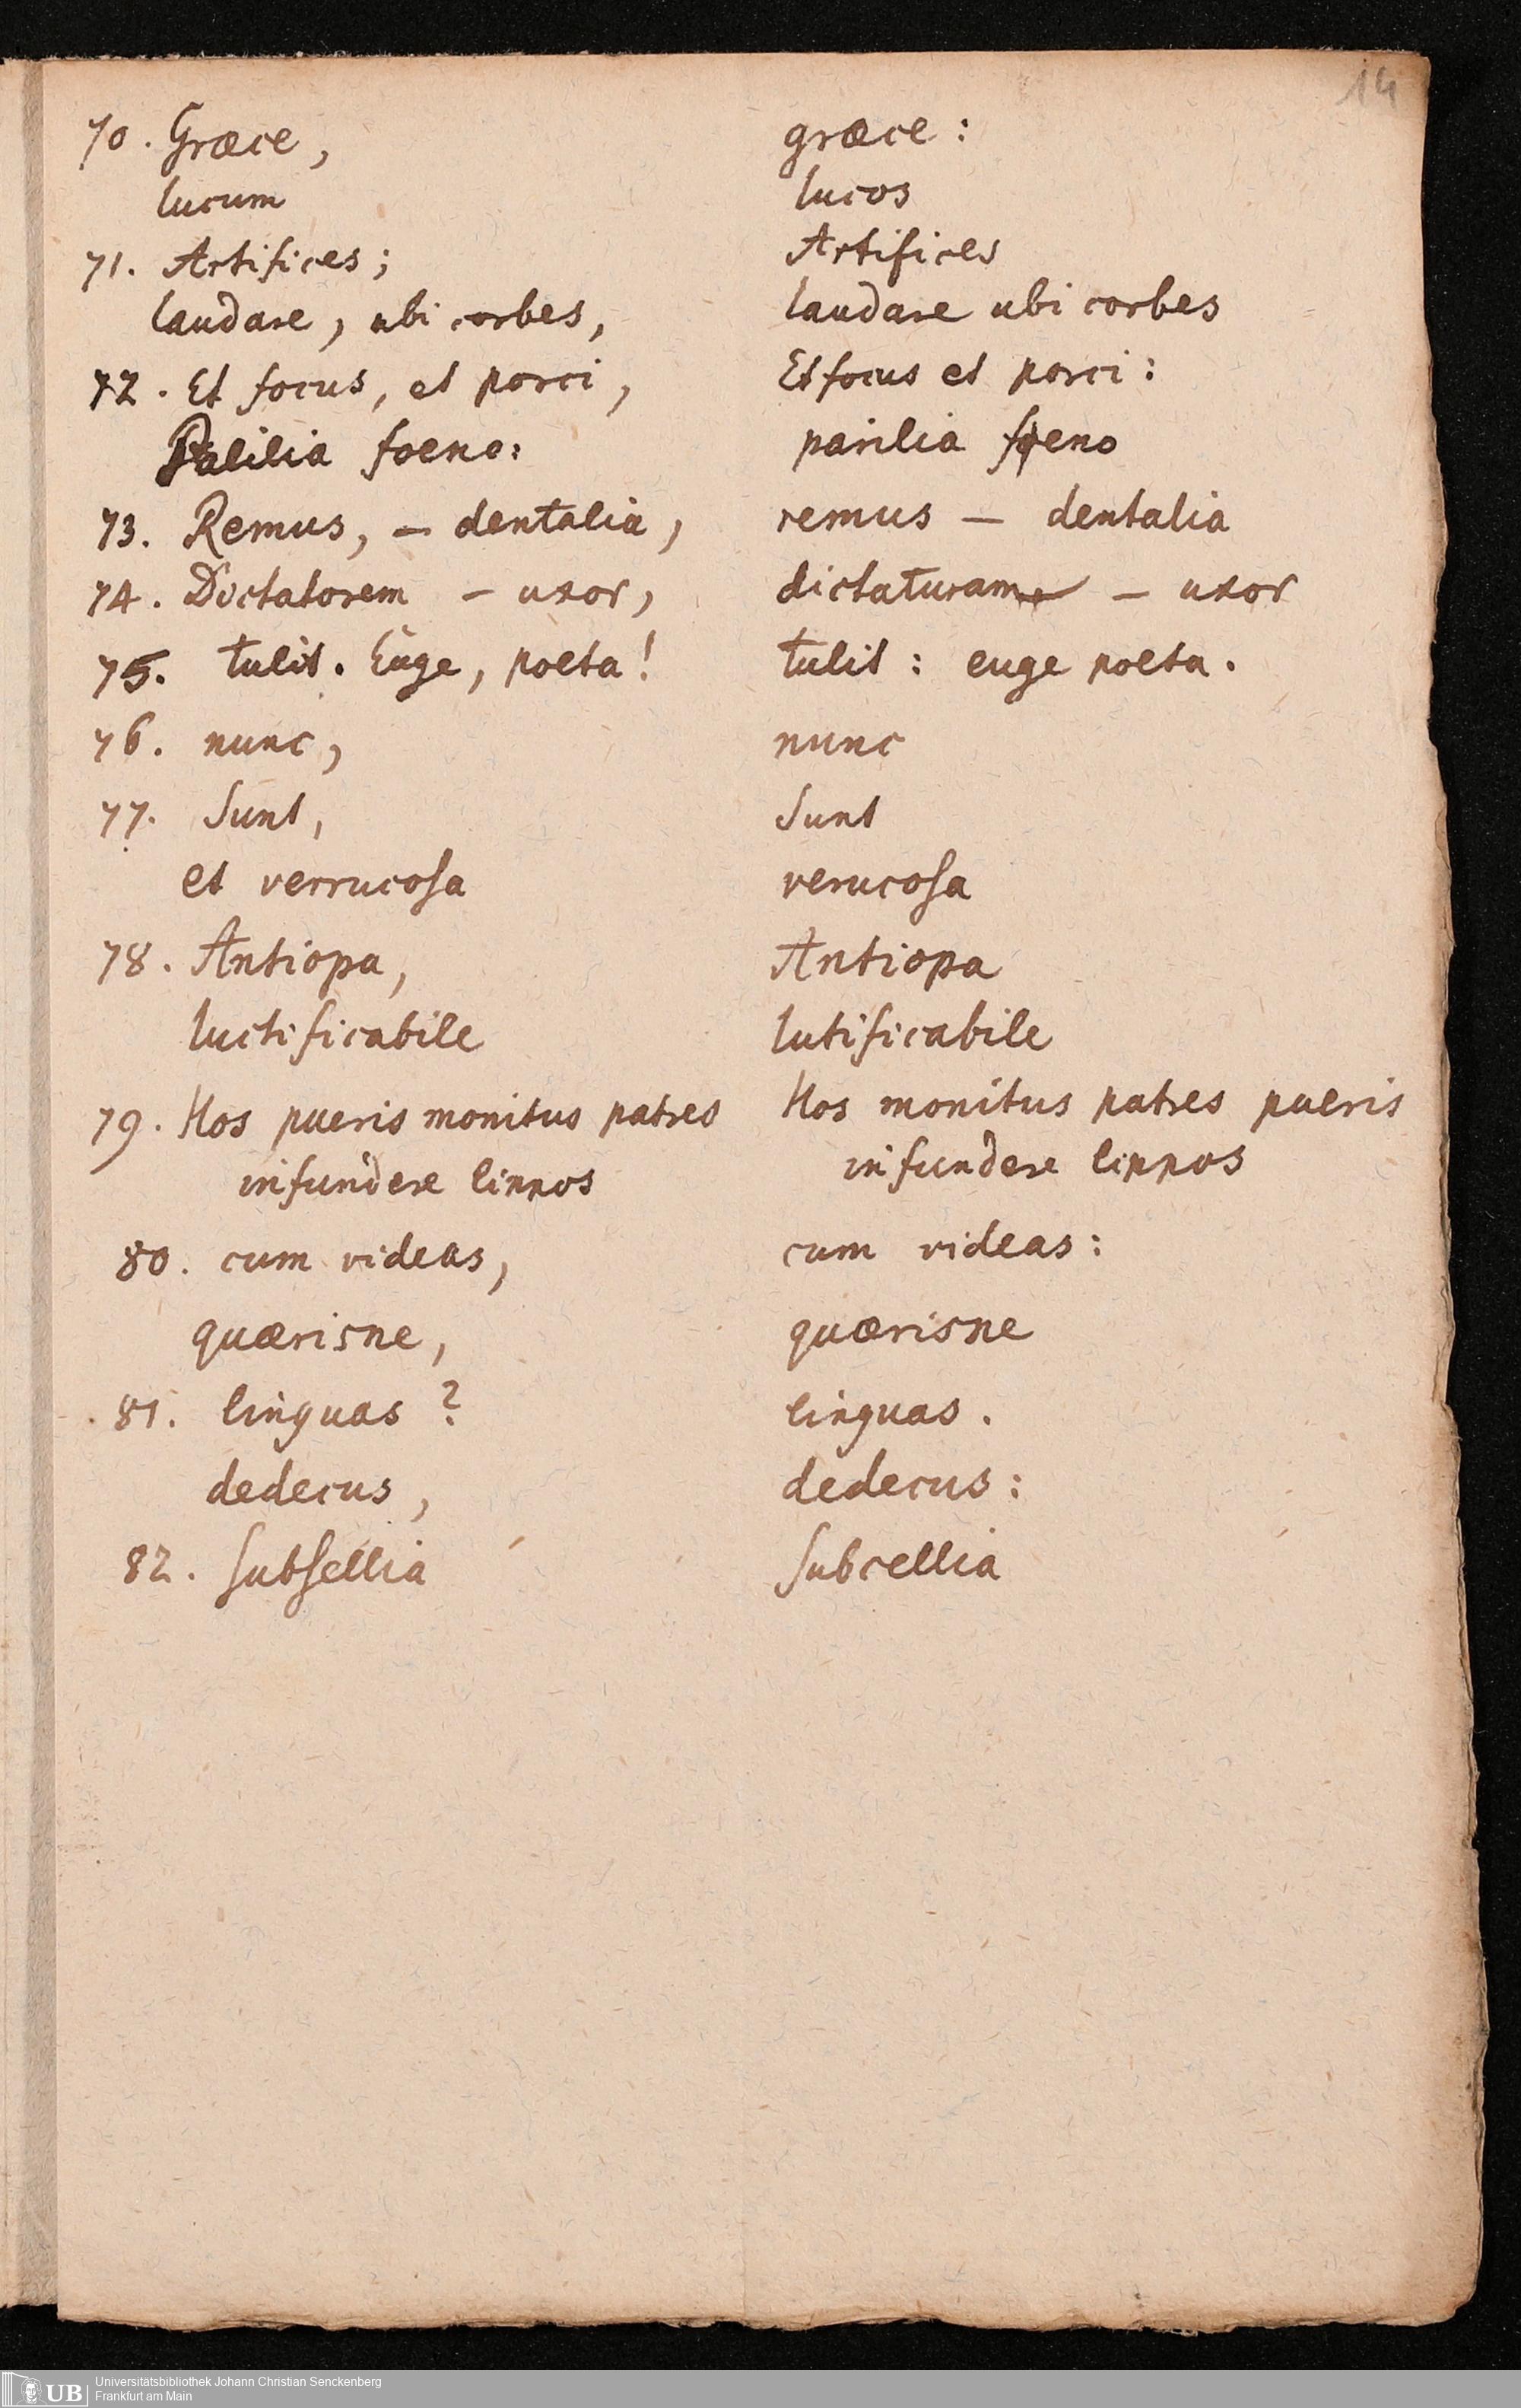 14
70. Græce, græce:
lucum lucos
71. Artifices; Artifices
laudare, ubi corbes, laudare ubi corbes
72. Et focus, et porci, Et focus et porci:
Palilia foeno: parilia foeno
73. Remus, – dentalia, remus – dentalia
74. Dictatorem – uxor, dictaturam – uxor
75. tulit. Euge, poeta! tulit: euge poeta.
76. nunc, nunc
77. Sunt, Sunt
et verrucosa verucosa
78. Antiopa, Antiopa
luctificabile lutificabile
79. Hos pueris monitus patres Hos monitus patres pueris
infundere lippos infundere lippos
80. cum videas, cum videas:
quærisne, quærisne
81. linguas? linguas.
dedecus, dedecus:
82. subsellia Subcellia
UB Universitätsbibliothek Johann Christian Senckenberg
Frankfurt am Main